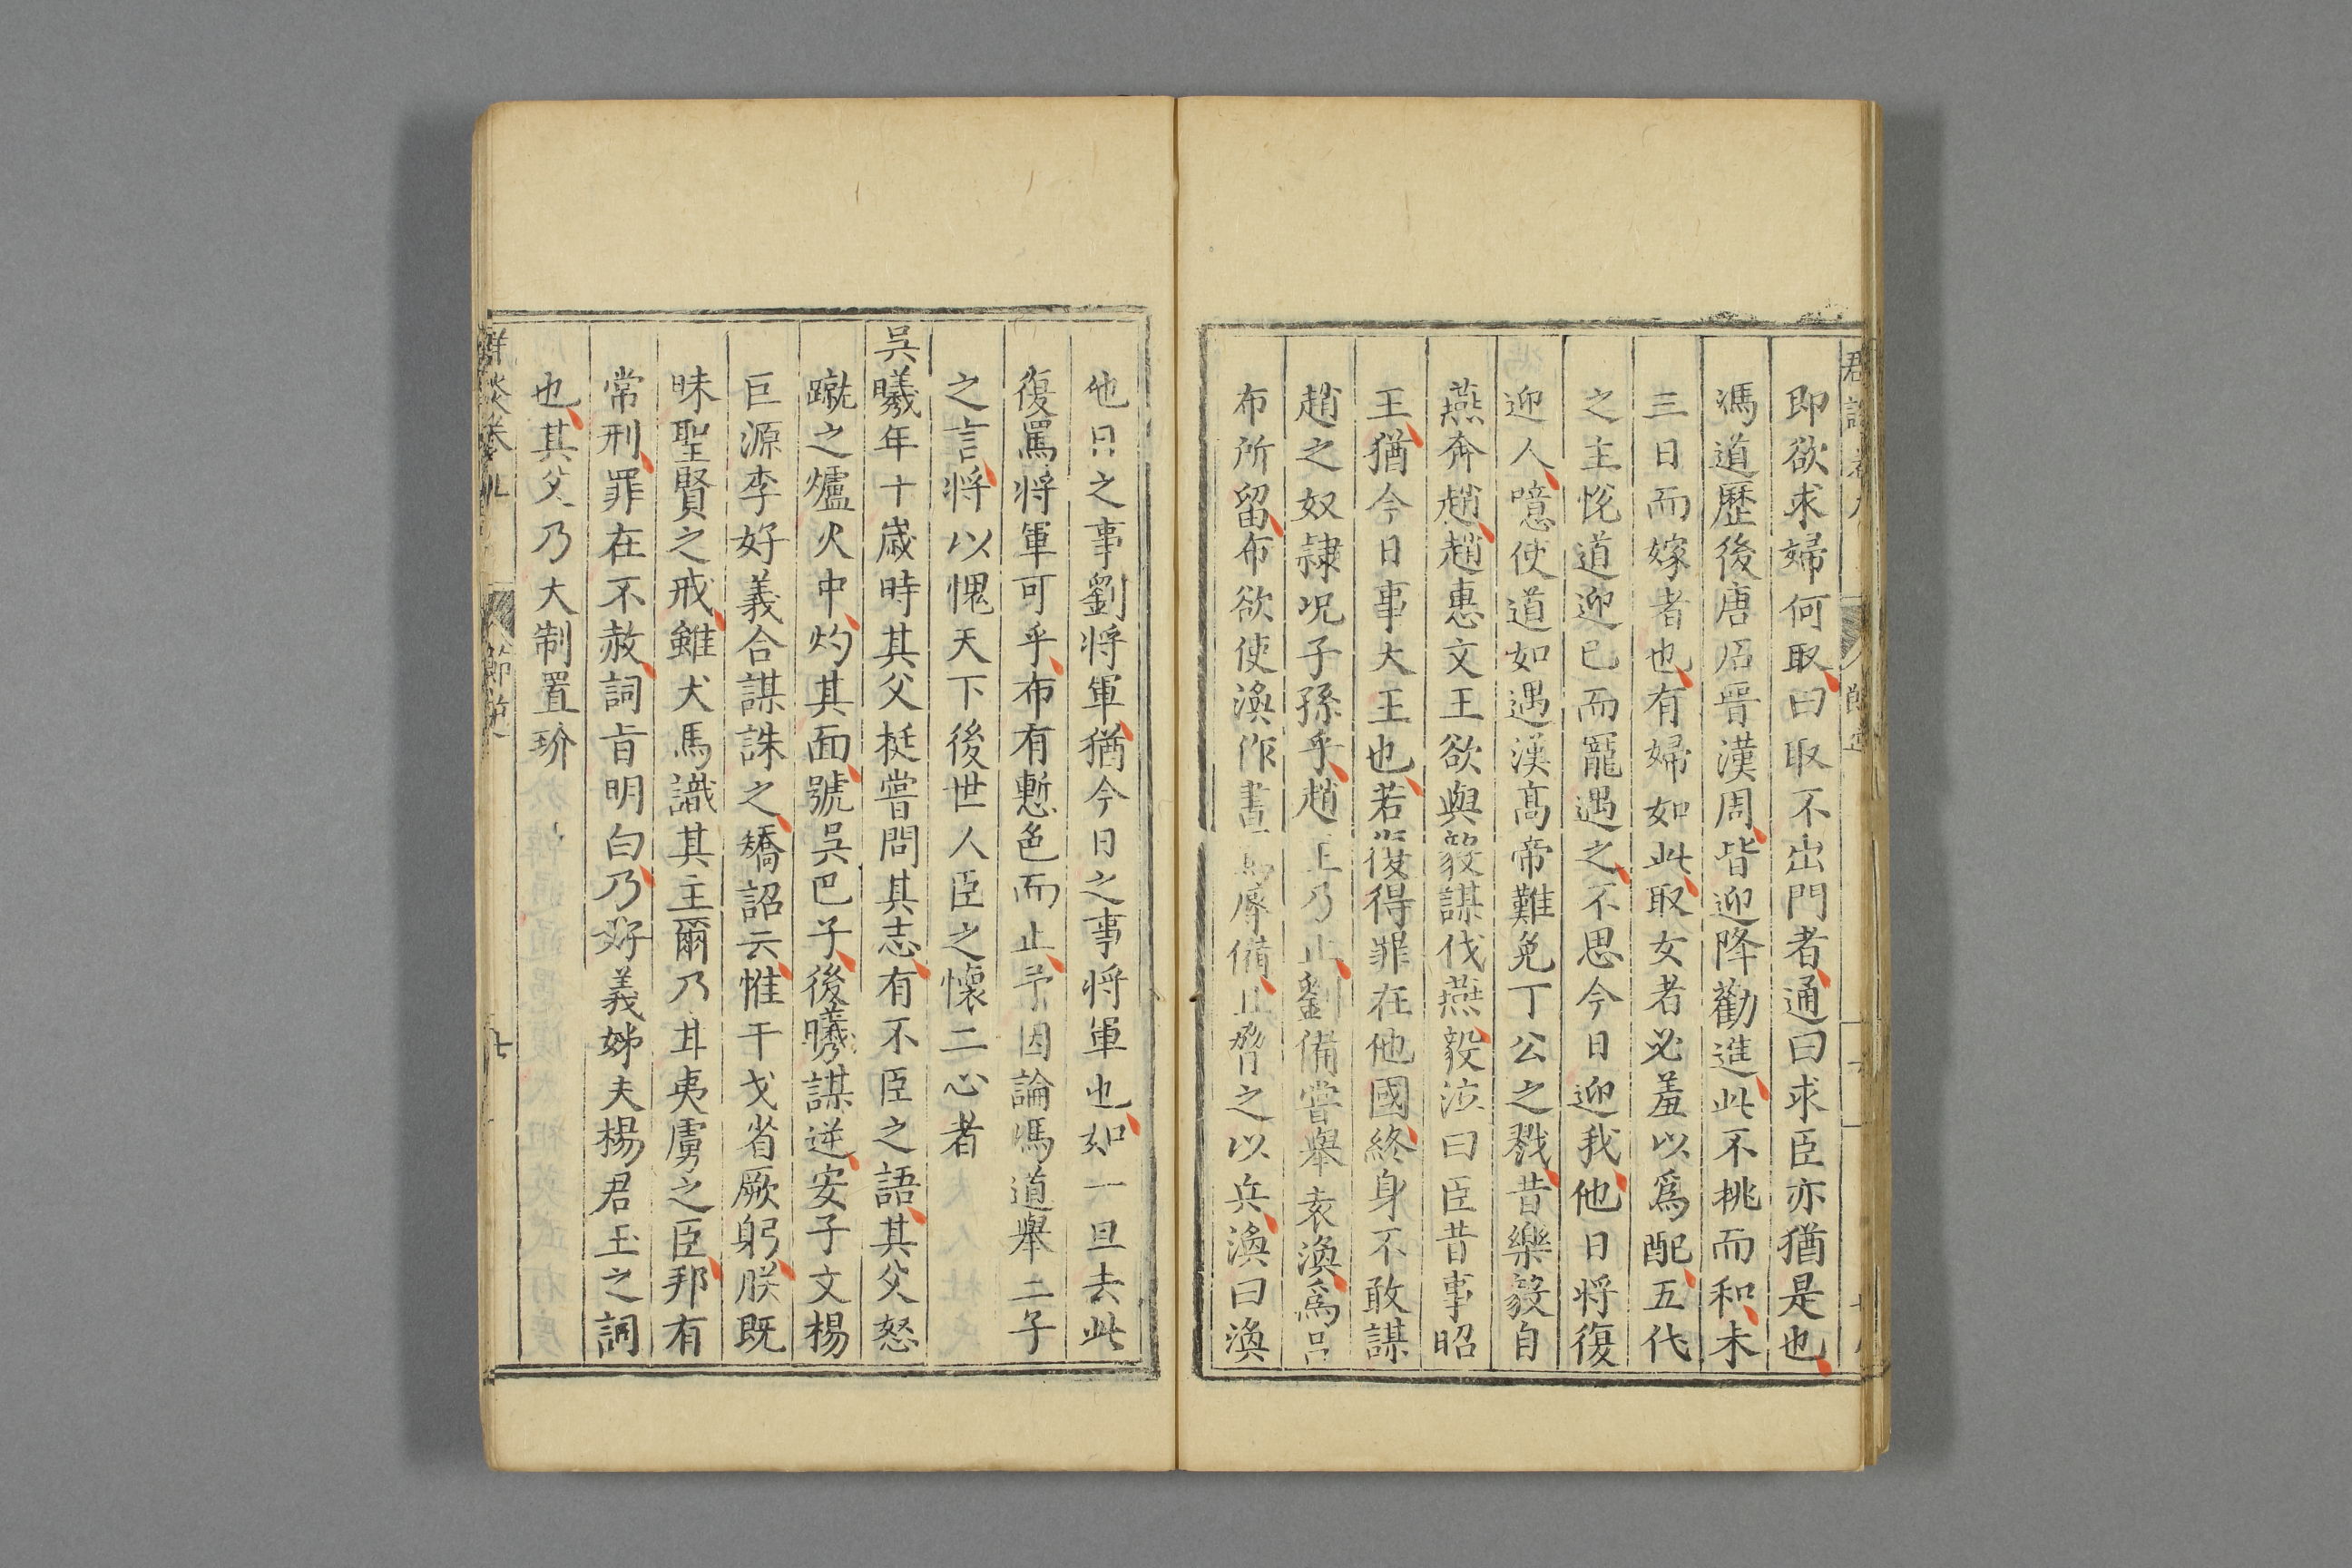 即欲求婦何取曰取不出門者通曰求臣亦猶是也
馮道歷後唐石晉漢周皆迎降勸進此不挑而和未
三日而嫁者也有婦如此取女者必羞以爲配五代
之主悅道迎已而寵遇之不思今日迎我他日將復
迎人噫使道如遇漢高帝難免丁公之戮昔樂毅自
燕奔趙趙惠文王欲與毅謀伐燕毅泣曰臣昔事昭
王猶今日事大王也若復得罪在他國終身不敢謀
趙之奴隷况子孫乎趙王乃止劉備嘗舉袁渙爲呂
布所留布欲使渙作書罵辱備脅之以兵渙曰渙
他日之事劉將軍猶今日之事將軍也如一旦去此
復罵將軍可乎布有慙色而止予因論馮道舉二子
之言將以愧天下後世人臣之懷二心者
吳曦年十歲時其父挺嘗問其志有不臣之語其父怒
蹴之爐火中灼其面號吳巴子後曦謀逆安子文楊
巨源李好義合謀誅之矯詔云惟干戈省厥躬朕既
昧聖賢之戒雖犬馬識其主爾乃甘夷虜之臣邦有
常刑罪在不赦詞旨明白乃好義姊夫楊君玉之詞
也其父乃大制置玠
群談卷九 節義 七